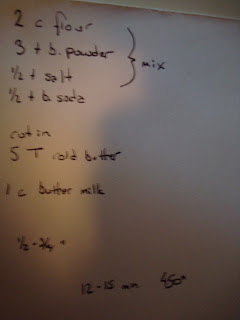 2 c flour
3 t b. powder
½ t salt
½ t b. soda
mix
cut in
5 T cold butter
1 c butter milk
½ - ¾ "
12-15 min 450°